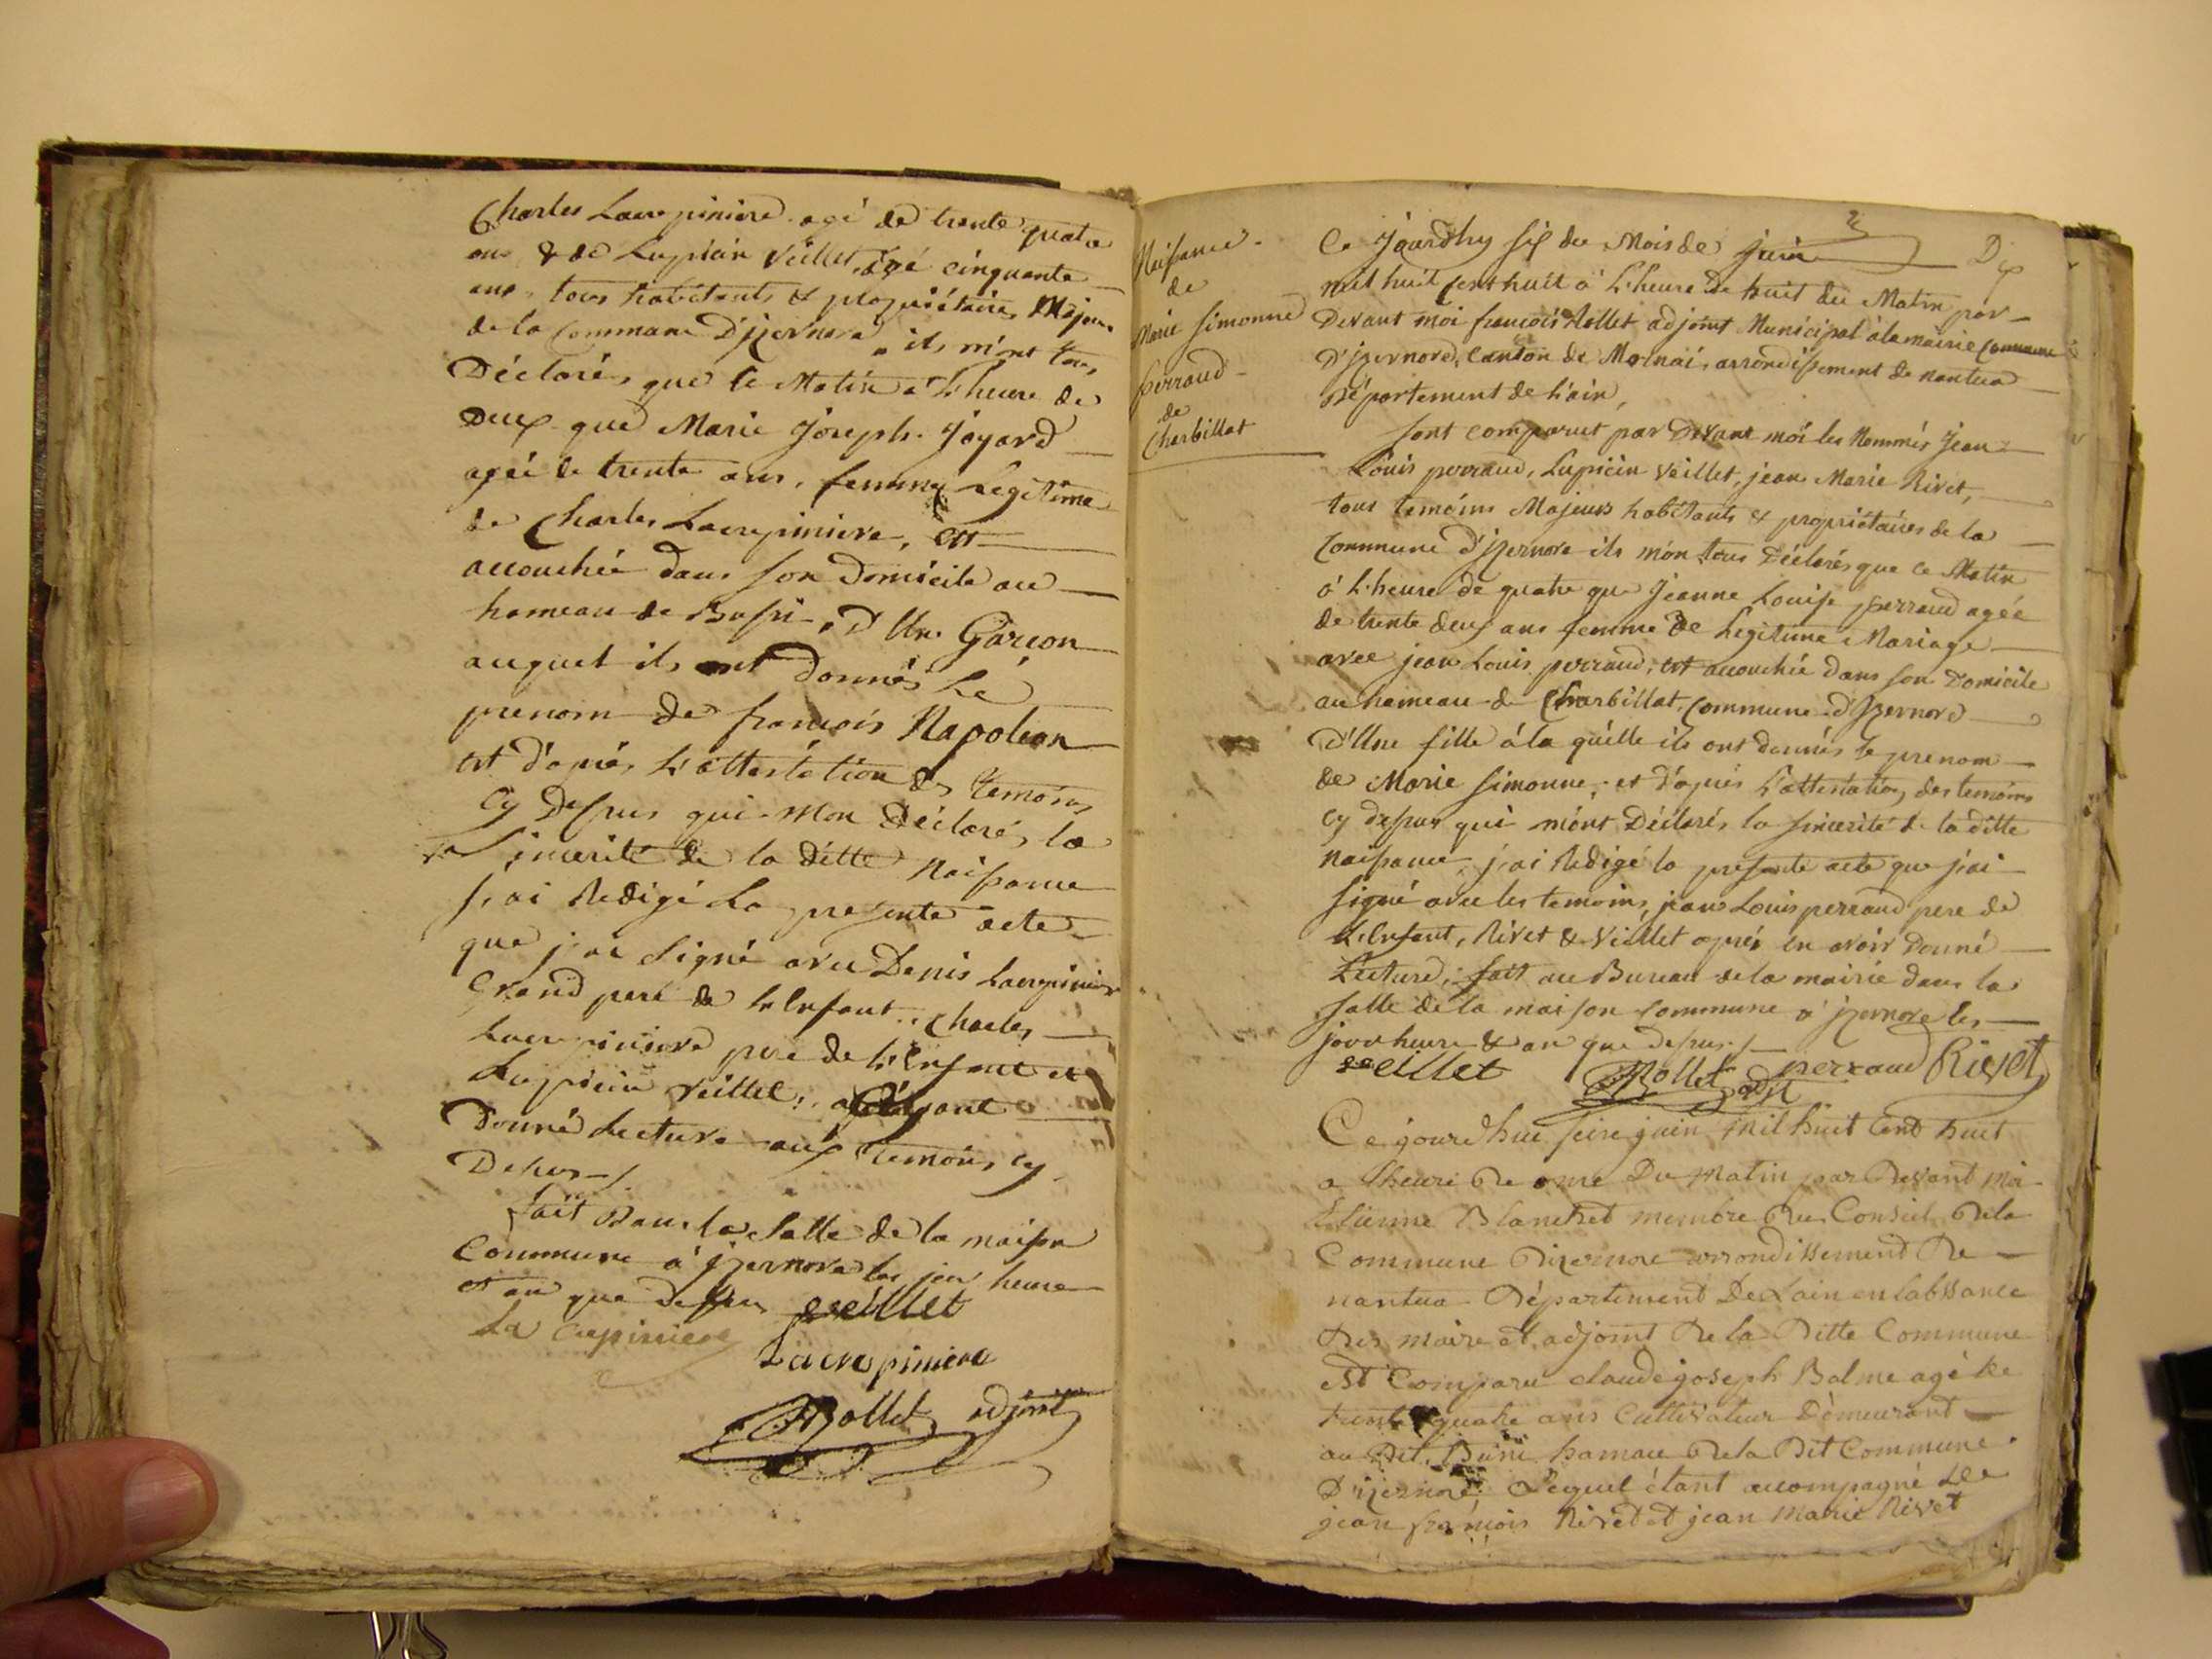 Charles Lacrepiniere agé de trente quatre
ans & de Lupicin Veillet, agé cinquante
ans, tous habitants & propriétaires Majeurs
de la Commune D'jzernore, ils m'ont tous
Déclarés que le Matin à L'heure de
Deux que Marie Joseph Joyard
ageé de trente ans, femme Legitime
de Charles Lacrepiniere, est
accouchée dans son Domicile au
hameau de Bussi, d'Un Garcon
auquel ils ont donnés Le
prenom de francois Napoleon
et d'aprés L'attestation des temoins
Cy Dessus qui mon Déclarés la
Sincerité de la ditte Naissance
j'ai Redigé La presente acte
que j'ai Signé avec Denis Lacrepiniere
Grand pere de L'Enfant, Charles
Lacrepiniere pere de L'Enfant et
Lupicin Veillet,
Donné Lecture aux temoins cy
Dessus /.
fait Dans la Salle de la maison
Commune à jzernore les jour heure
et an que dessus veillet
La crepiniere
Lacrepiniere
Rollet adjoint
Naissance
de
Marie Simonne
perraud
de
Charbillat
Ce Jourdhuy six du Mois de juin Dix
mil huit Cent huit à L'heure de huit du Matin par
Devant moi francois Rollet adjoint Municipal à la mairie Commune
D'jzernore, Canton de Mornai, arrondissement de nantua
Département de L'ain,
Sont comparut par Devant moi les Nommés Jean
Louis perraud, Lupicin Veillet, jean Marie Rivet,
tous temoins Majeurs habitants & propriétaires de la
Commune d'jzernore ils m'on tous Déclarés que ce Matin
à L'heure de quatre que Jeanne Louise perraud agée
de trente deux ans femme De Legitime Mariage
avec jean Louis perraud, est accouchée dans son Domicile
au hameau de Charbillat, Commune d'jzernore
D'Une fille à la quélle ils ont donnés le prenom
de Marie Simonne, et d'aprés L'attestation des temoins
Cy dessus qui m'ont Déclarés la sincerité de la ditte
naissance, j'ai Redigé la presente acte que j'ai
signé avec les temoins, jean Louis perraud pere de
L'Enfant, Rivet & Veillet aprés en avoir Donné
Lecture, fait au Bureau de la mairie dans la
Salle de la maison Commune à jzernore les
jour heure & an que dessus /.
veillet Rollet adjt perraud Rivet
Ce jourdhui seize juin mil huit Cent huit
a lheure de onze Du Matin par Devant Moi
Etienne Blanchet membre du Conseil de la
Commune dizernore arrondissement de
nantua Département De Lain en labssance
des maire et adjoint de la Ditte Commune
est Comparu claude joseph Balme agé de
trente quatre ans Cultivateur Démeurant
au Dit hamau de la Dit Commune
D'izernore Lequel étant accompagné de
jean francois Rivet et jean Marie Rivet